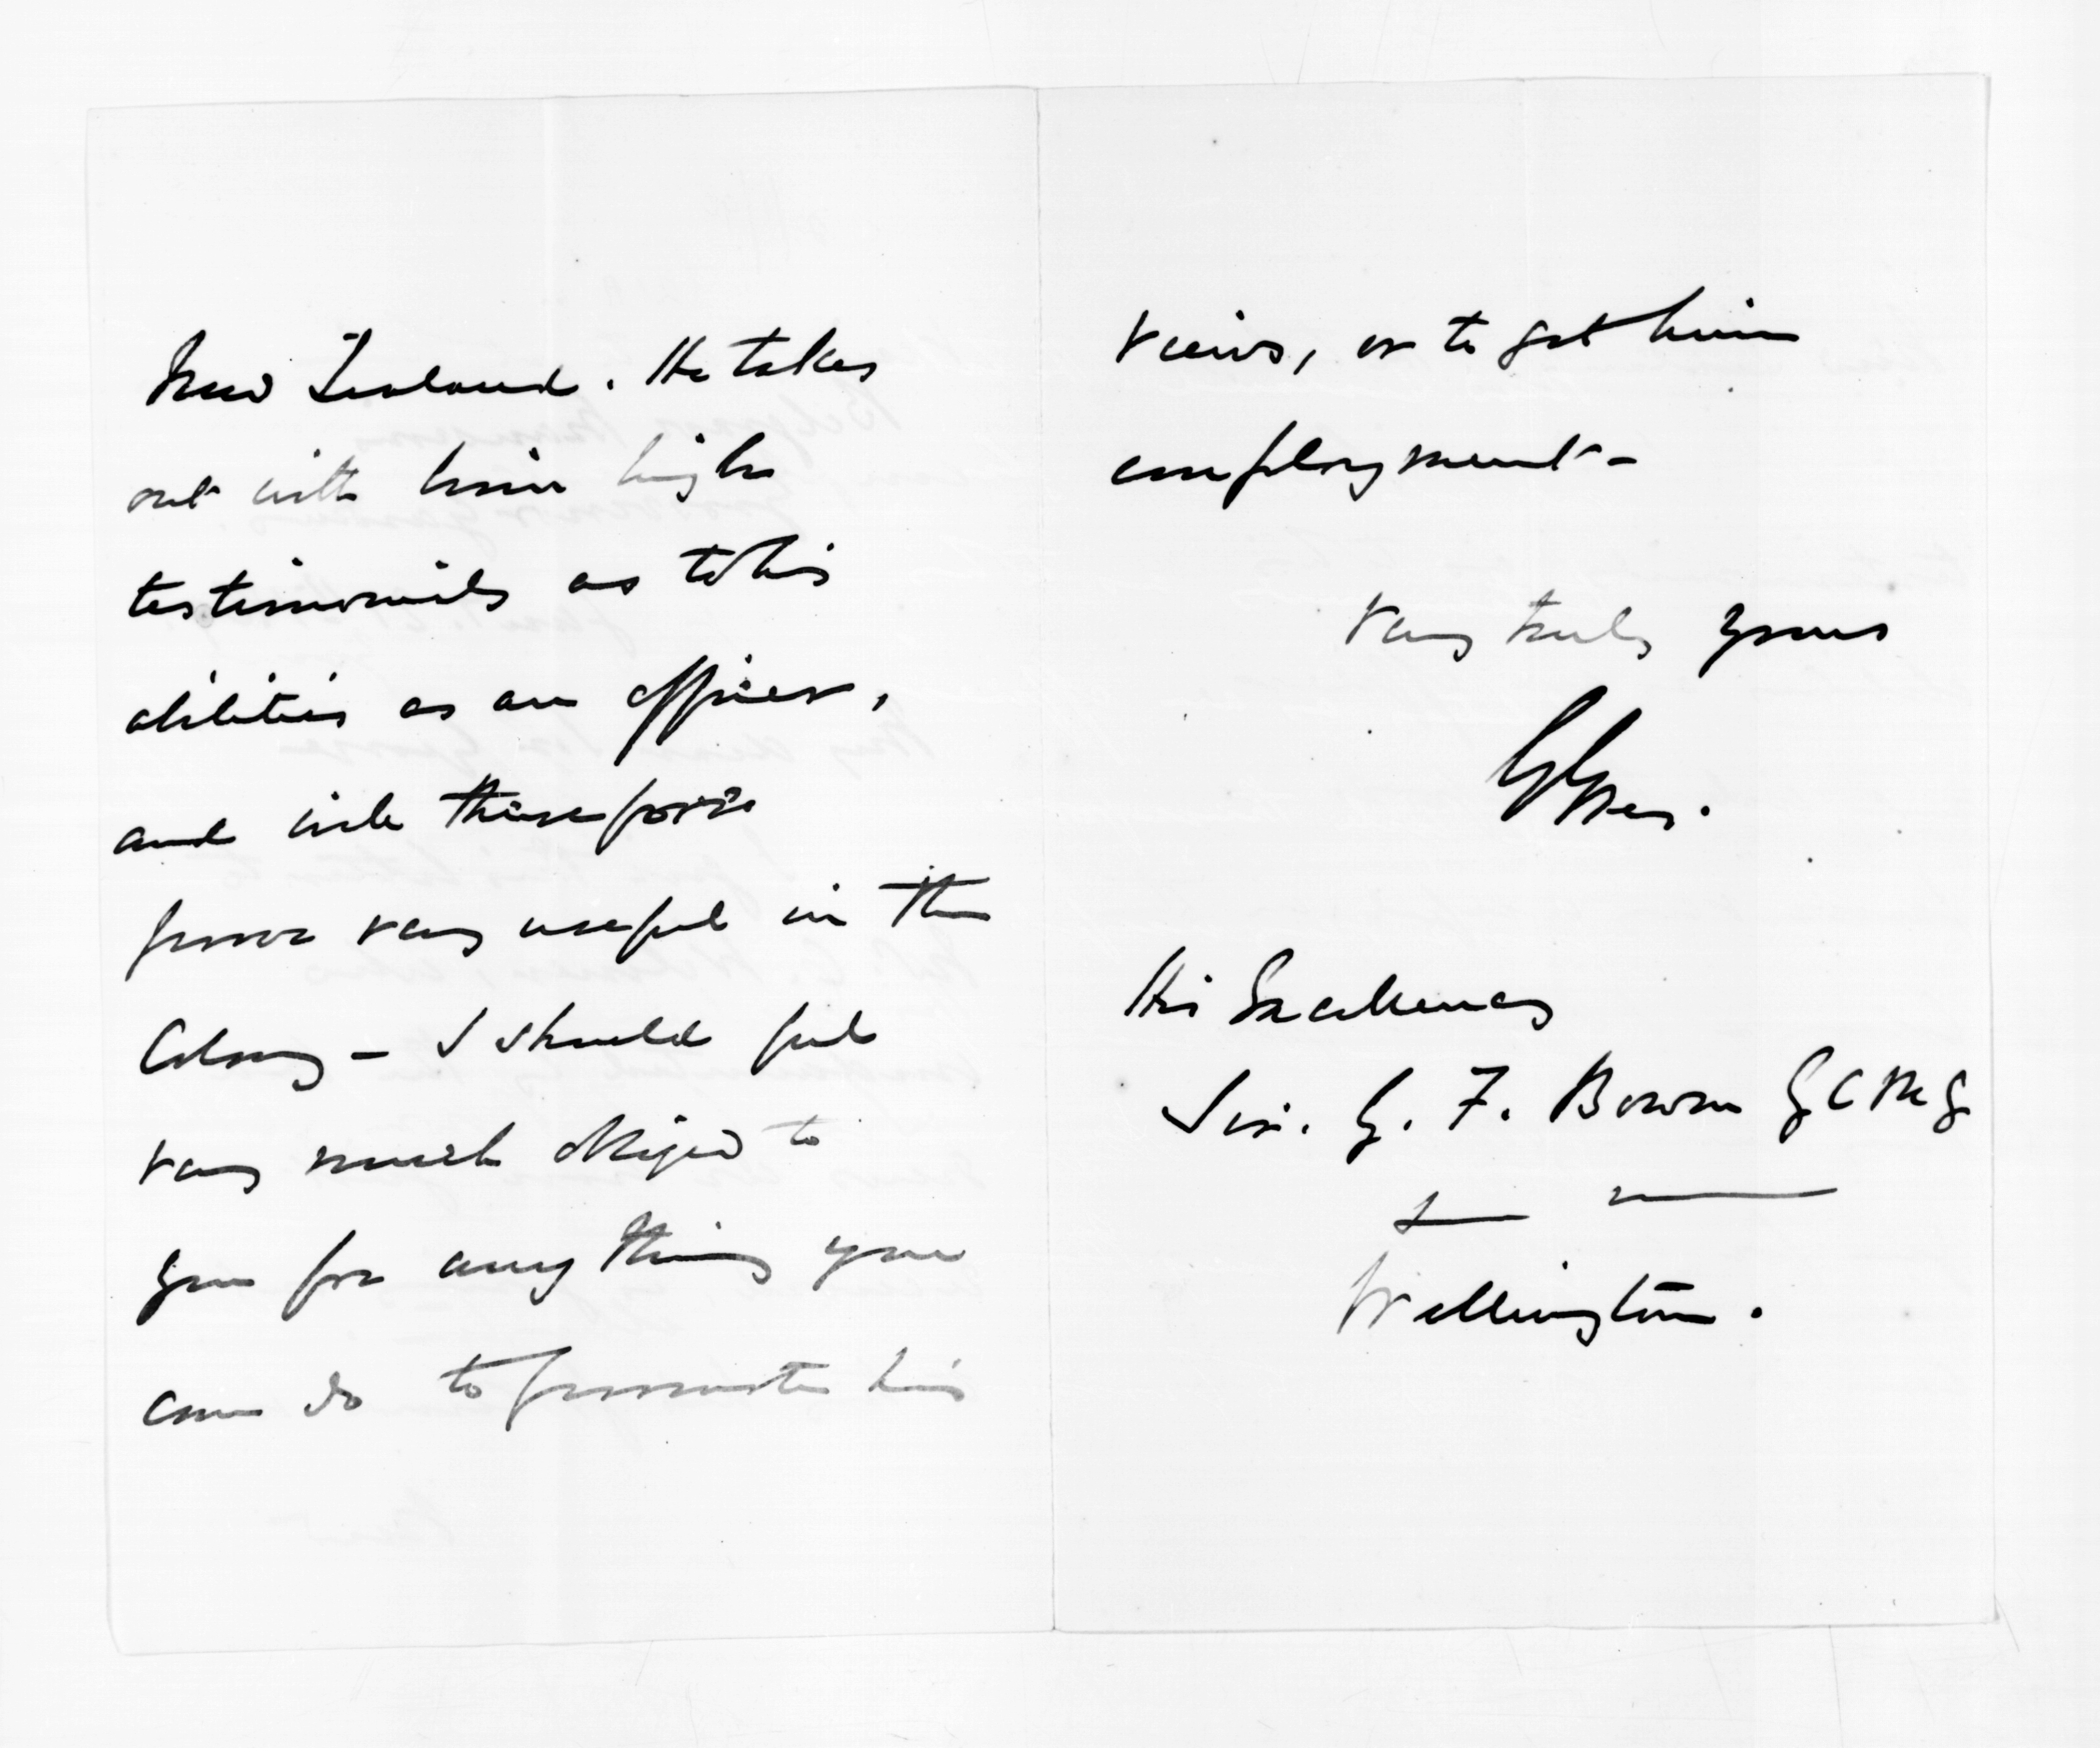 New Zealand. He takes
out with him high
testimonials as to his
abilities as an officer,
and will therefore
prove very useful in the
Colony – I should feel
very much obliged to
you for anything you
can do to promote his
views, or to get him
employment –
Very truly yours
G Grey.
His Excellency
Sir. G. F. Bowen G C M G
Wellington.